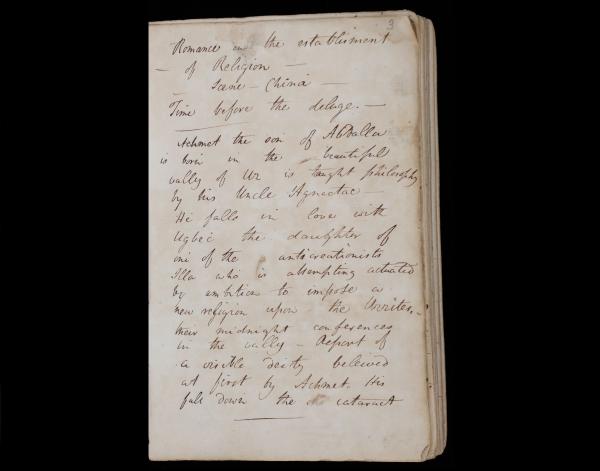 3
Romance on the establisment
– of Religion –
Scene – China –
Time before the deluge. –
Achmet the son of Abdalla
is born in the beautiful
vally of Ur is taught philosophy
by his Uncle
He falls in love with
the daughter of
one of the anticreationists
Illa who is attempting actuated
by ambition to impose a
new religion upon the Urrites. –
their midnight conferences
in the vally – Report of
a visible deity beleived
at first by Achmet. His
fall down the cataract